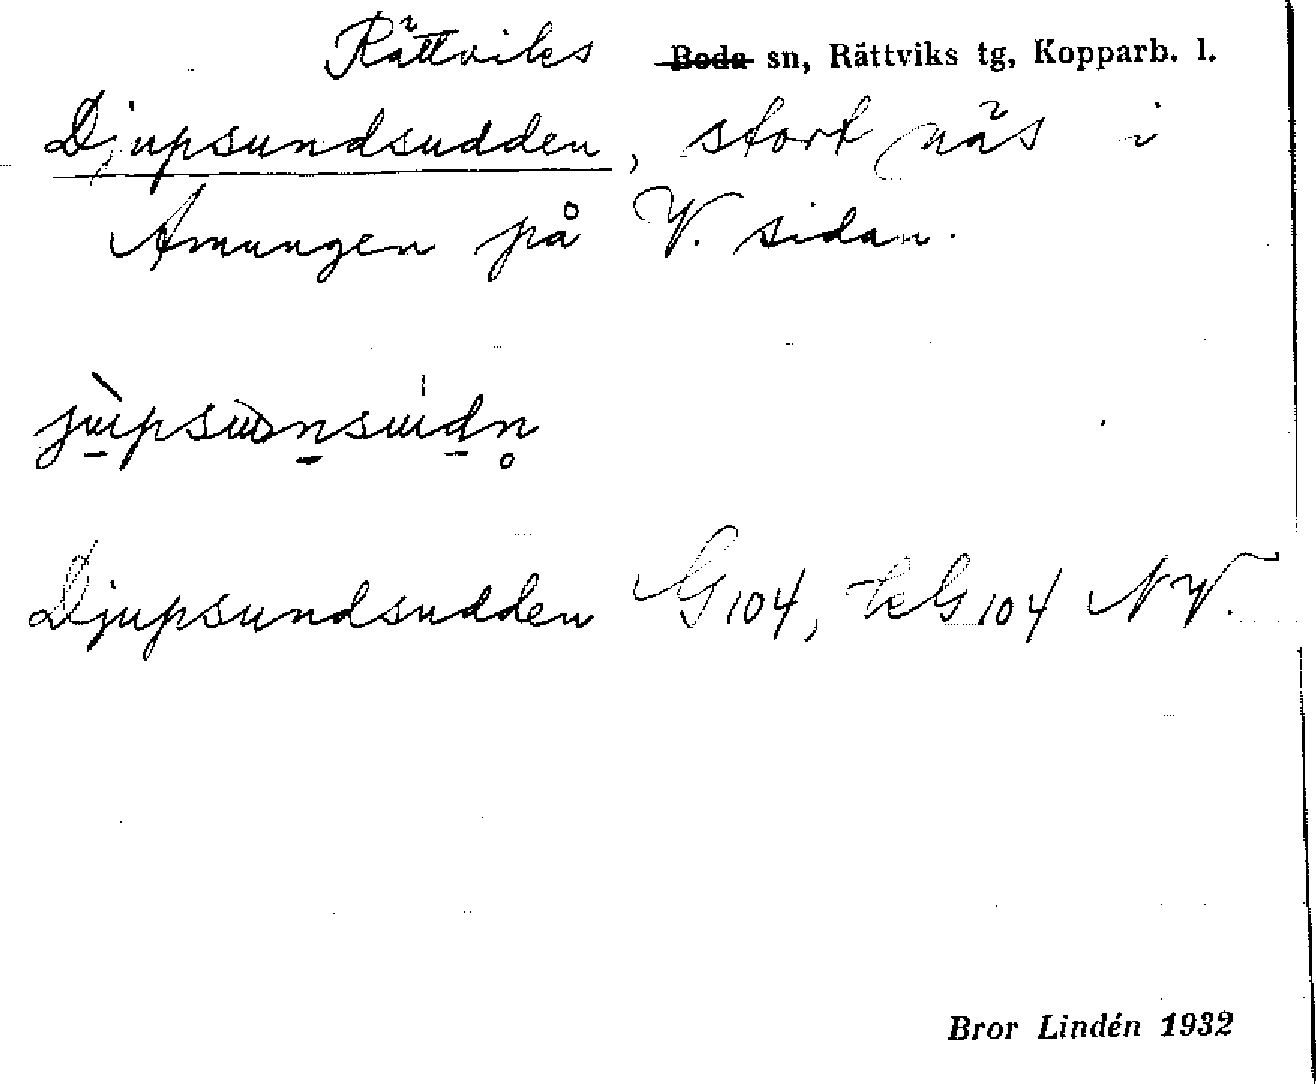 Rättviks Boda sn, Rättviks tg, Kopparb. l.
Djupsundsudden, stort näs i
Amungen på V. sidan.
Djupsundsudden G 104, kG 104 NV.
Bror Lindén 1932